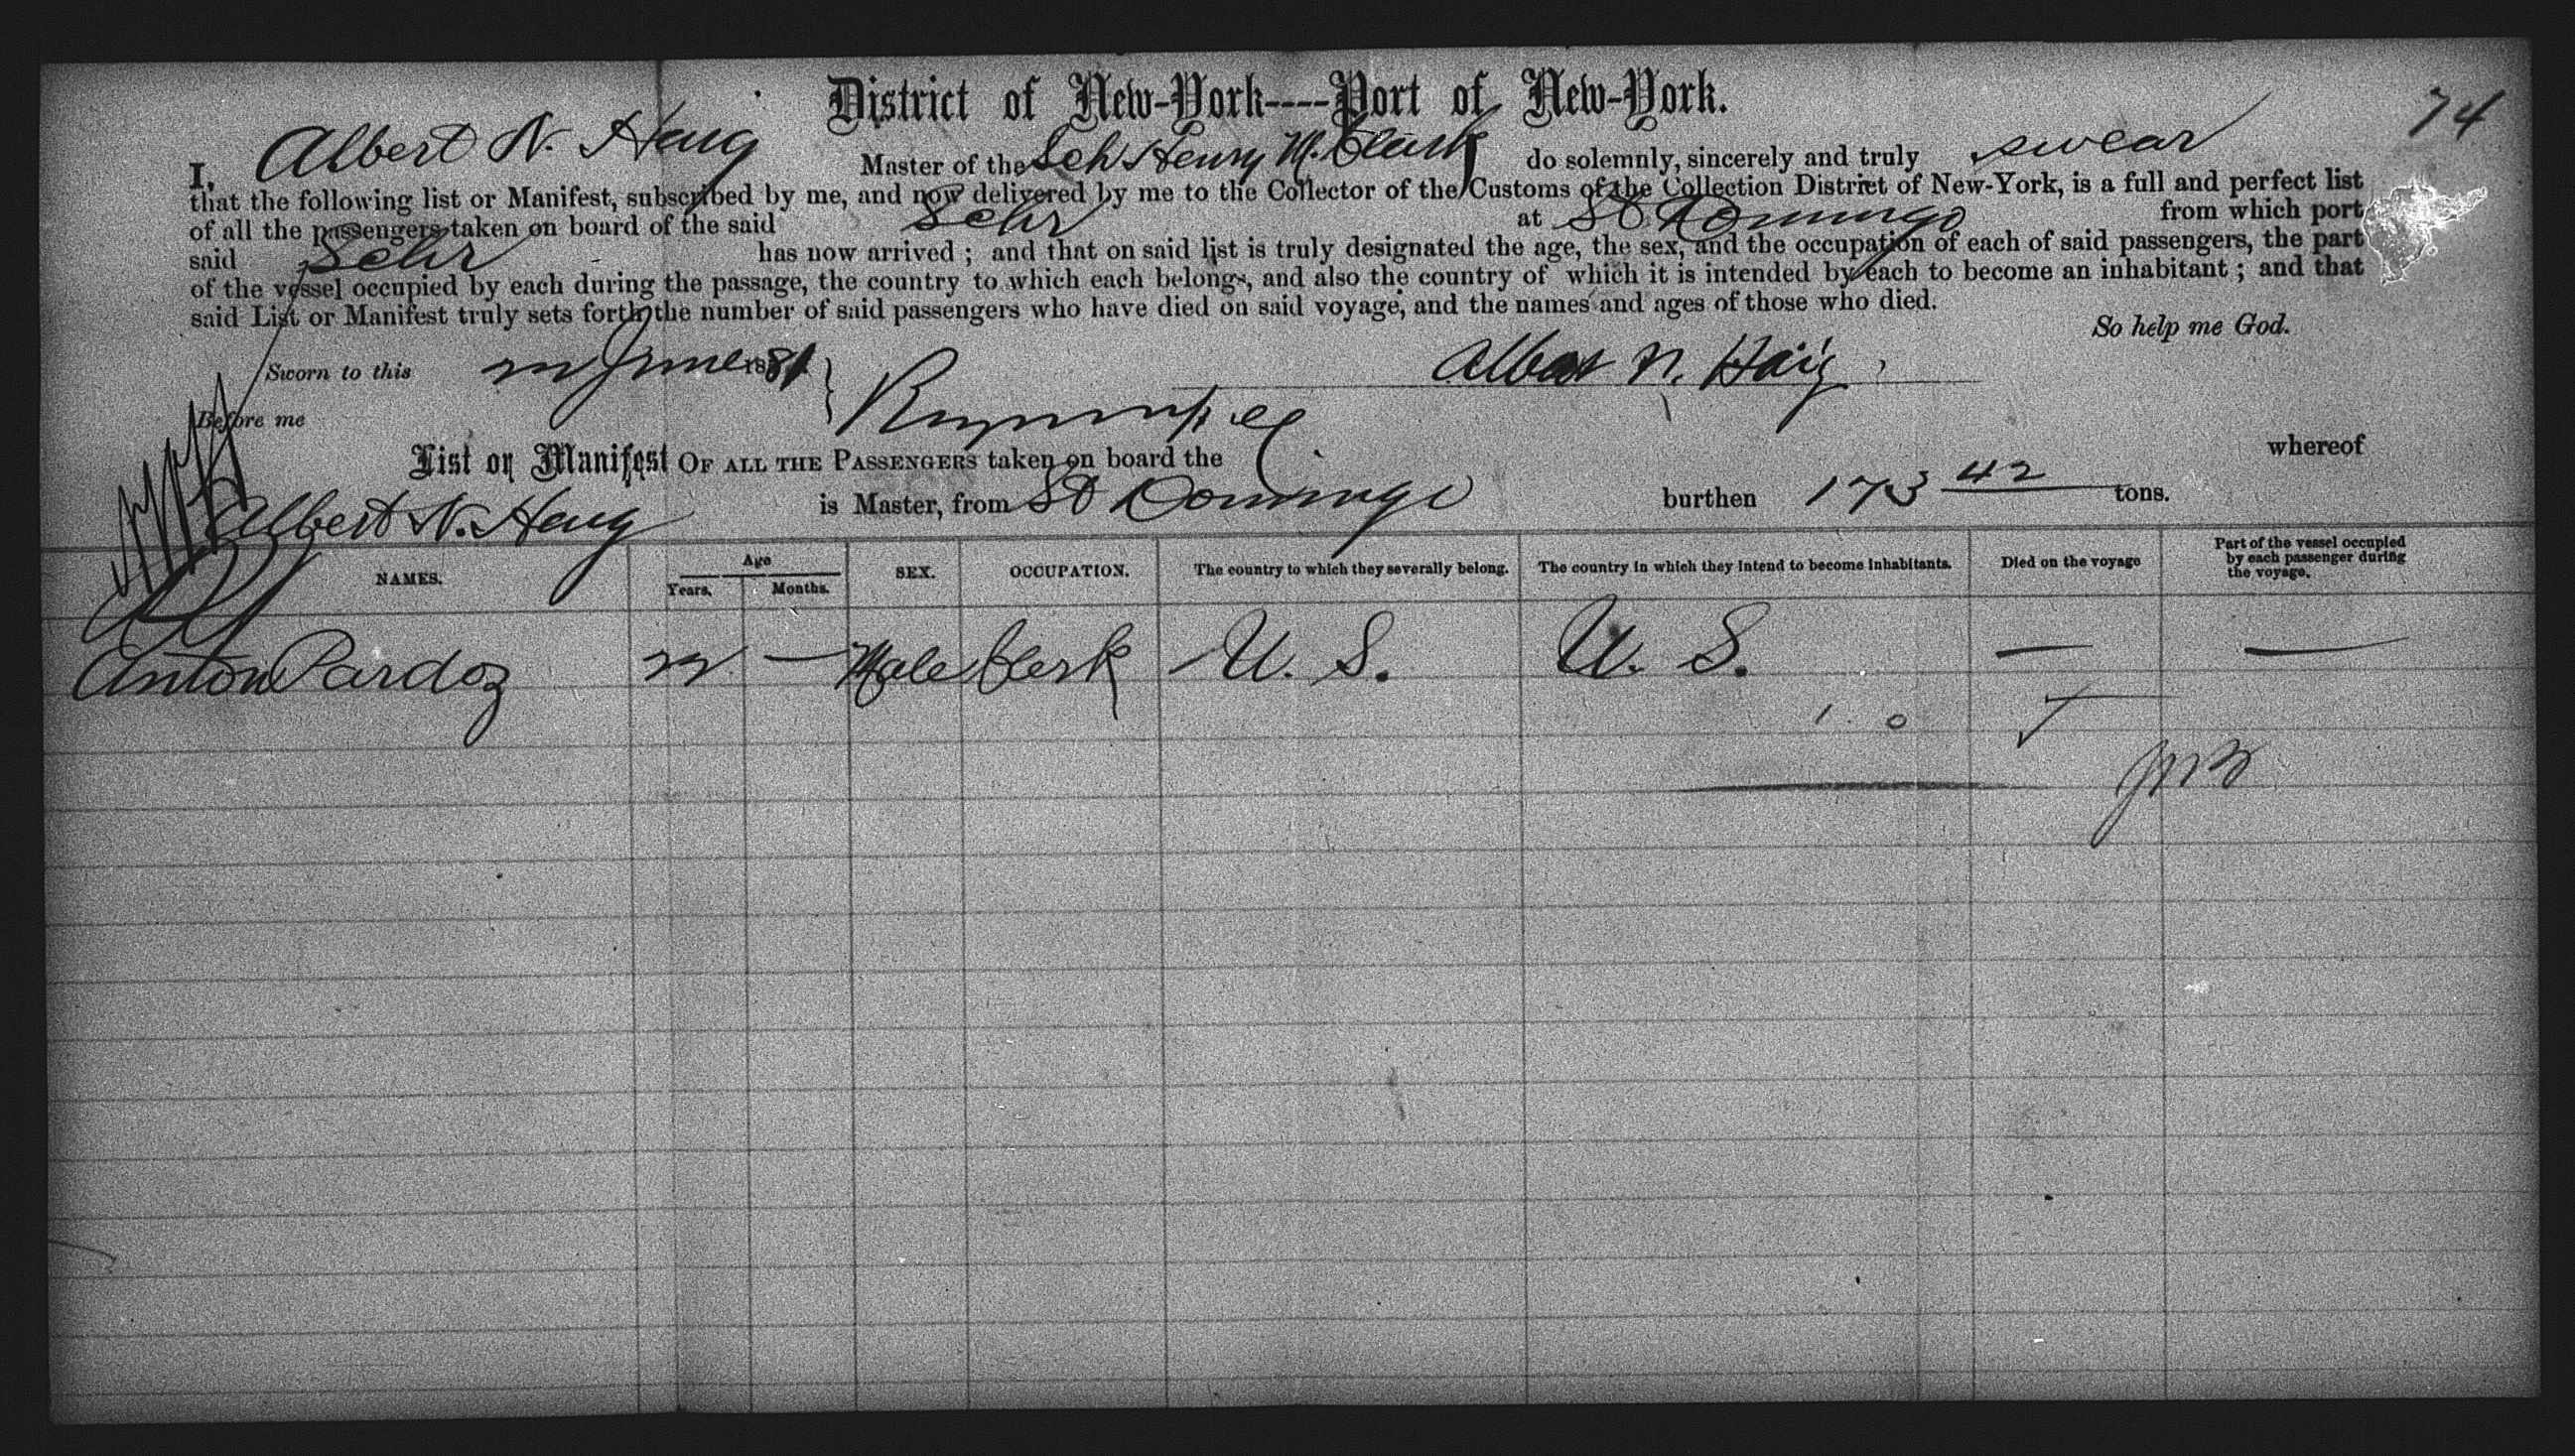 District of New-York----Port of New-York.
74
I, Albert N. Haug Master of the Sch Henry M. Clark do solemnly, sincerely and truly swear
that the following list or Manifest, subscribed by me, and now delivered by me to the Collector of the Customs of the Collection District of New-York, is a full and perfect list
of all the passengers taken on board of the said Schr at St Domingo from which port
said Schr has now arrived ; and that on said list is truly designated the age, the sex, and the occupation of each of said passengers, the part
of the vessel occupied by each during the passage, the country to which each belongs, and also the country of which it is intended by each to become an inhabitant ; and that
said List or Manifest truly sets forth the number of said passengers who have died on said voyage, and the names and ages of those who died.
So help me God.
Sworn to this June 1881 Albert N. Haig
Before me
List or Manifest OF ALL THE PASSENGERS taken on board the whereof
Albert N. Haug is Master, from St Domingo burthen 173 42 tons.
NAMES. Age Years. Months. SEX. OCCUPATION. The country to which they severally belong. The country in which they intend to become inhabitants. Died on the voyage Part of the vessel occupied by each passenger during the voyage.
Anton Pardoz — Male Clerk U. S. U. S. — —